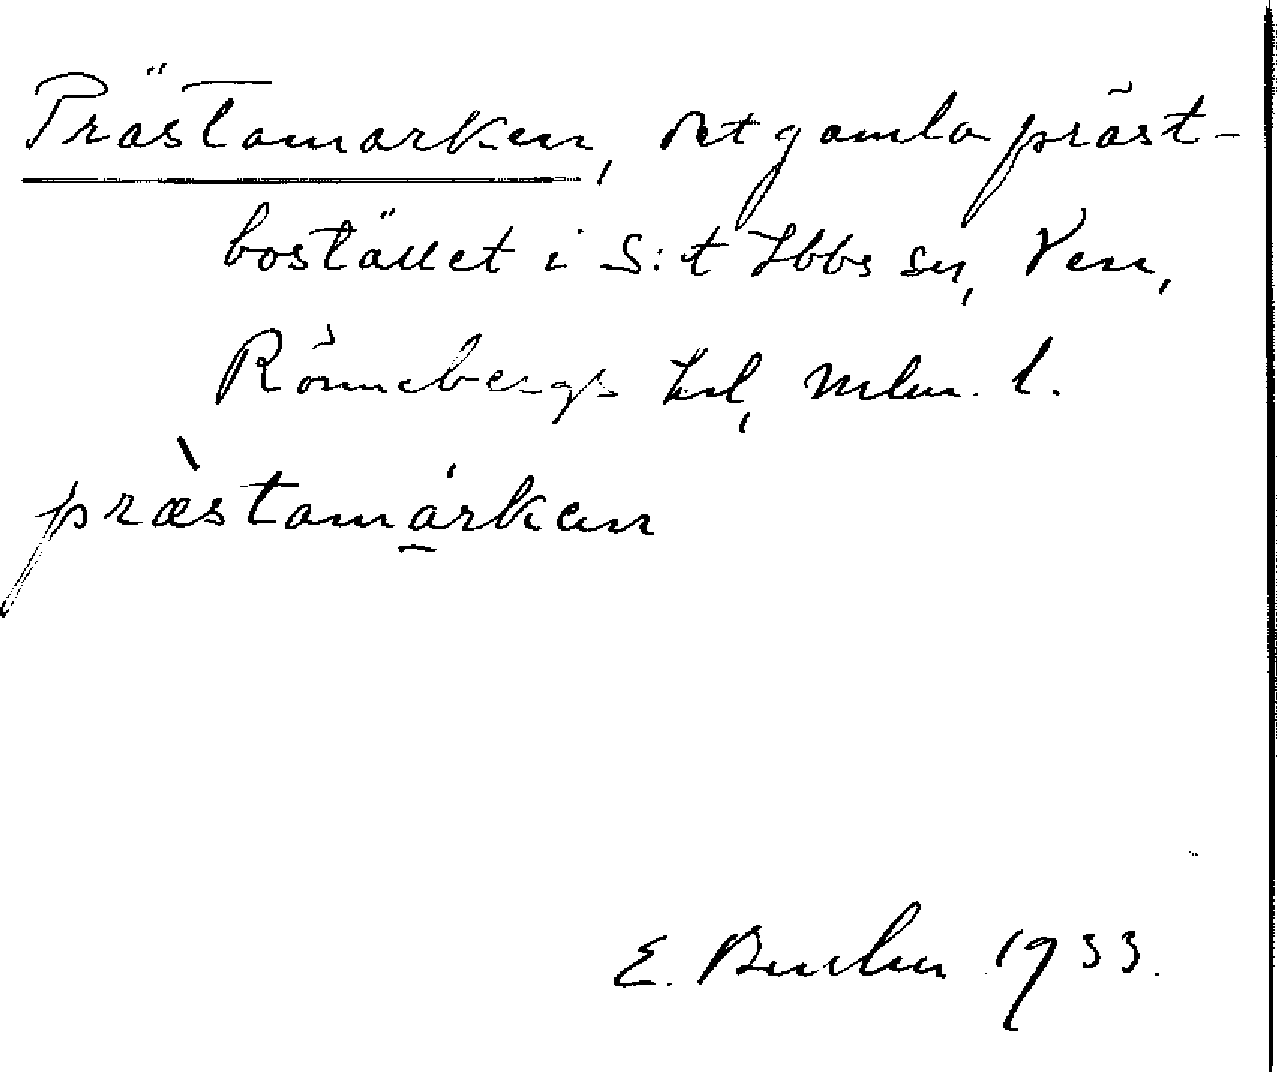 Prästamarken, det gamla präst-
bostället i S:t Ibbs sn, Ven,
Rönnebergs hd, Mlm. l.
præ̀stamárken
E. 1933.